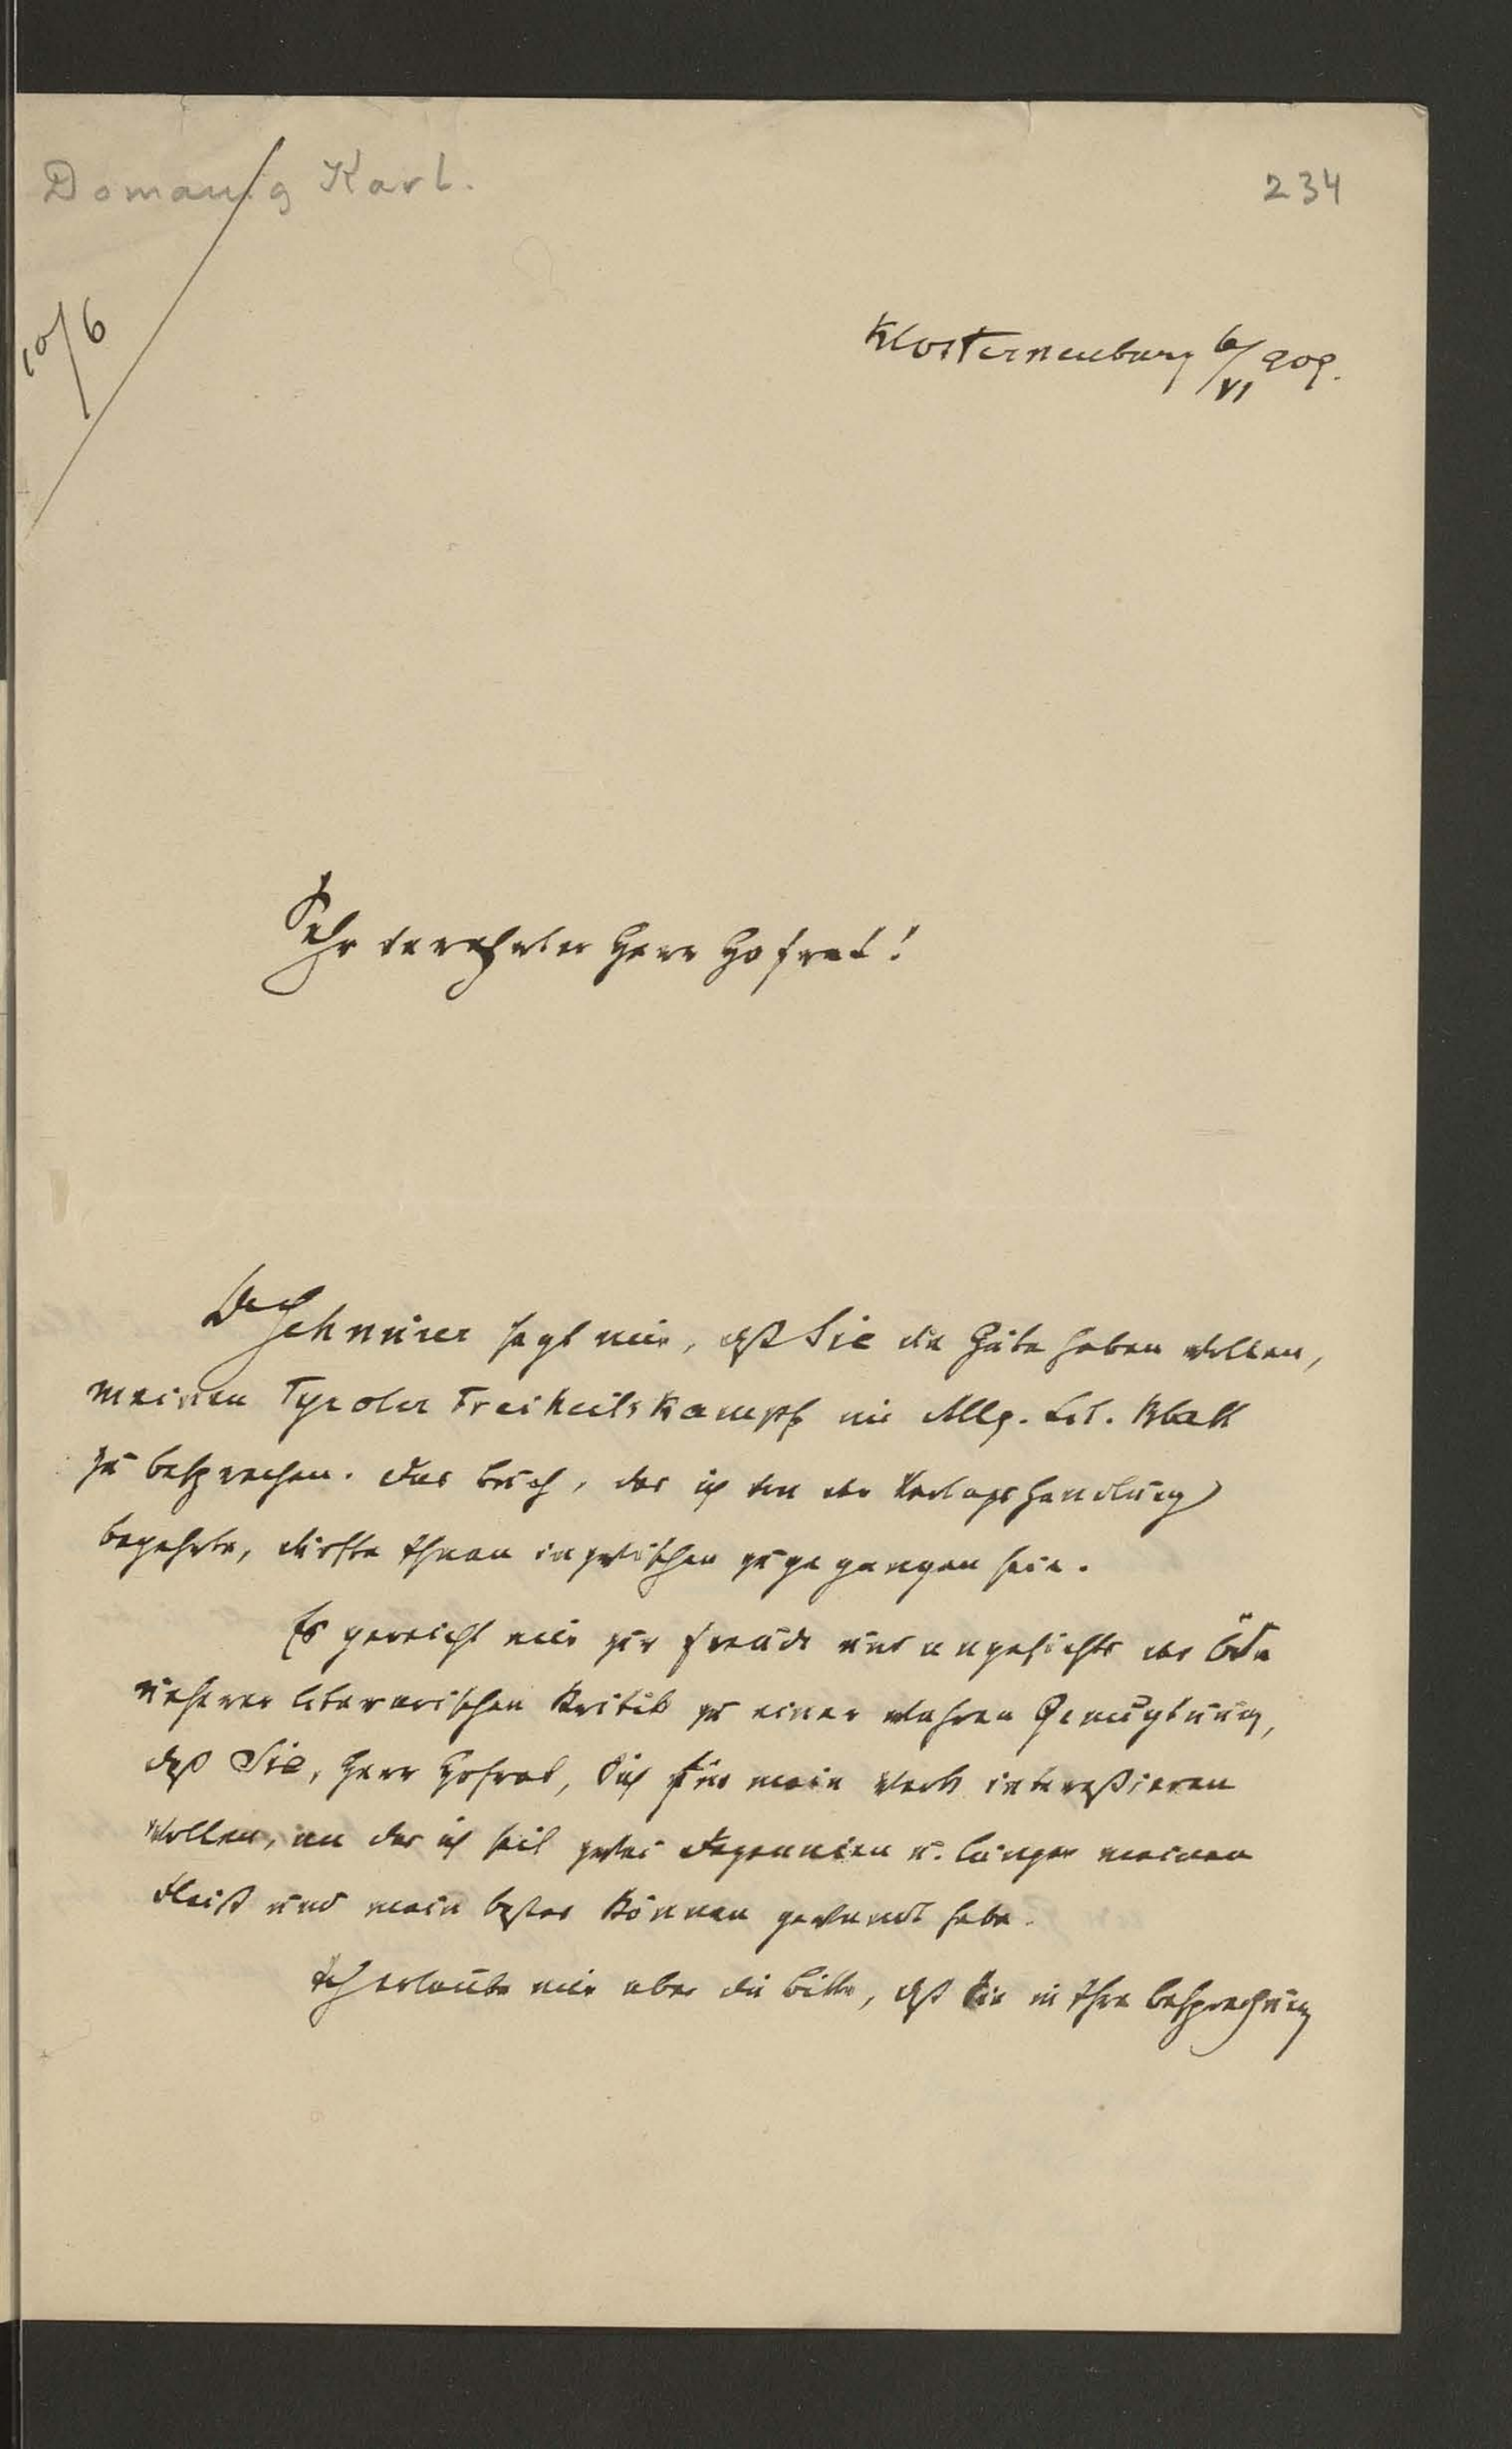 Domanig Karl.
234
10/6
Klosterneuburg 6/VI 909.
Sehr verehrter Herr Hofrat!
Dr Schnürer sagt mir, daß Sie die Güte haben wollen,
meinen Tyroler Freiheitskampf im Allg. Lit. Blatt
zu besprechen. Das Buch, das ich von der Verlagshandlung
begehrte, dürfte Ihnen inzwischen zugegangen sein.
Es gereicht mir zur Freude und angesichts der Öde
unserer literarischen Kritik zu einer wahren Genugtuung,
daß Sie, Herr Hofrat, sich für mein Werk interessieren
wollen, an das ich seit zwei Dezennien u. länger meinen
Fleiß und mein bestes Können gewandt habe.
Ich erlaube mir aber die Bitte, daß Sie in Ihrer Besprechung